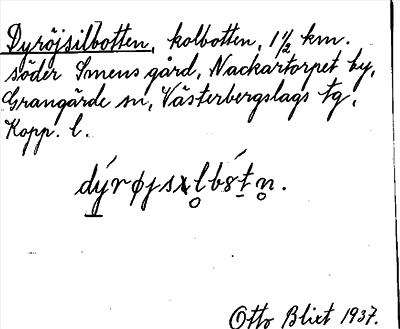 Dyröjsilbotten, kolbotten, 1½ km.
söder Smens gård, Nackartorpet by,
Grangärde sn, Västerbergslags tg,
Kopp. l.
Otto Blixt 1937.